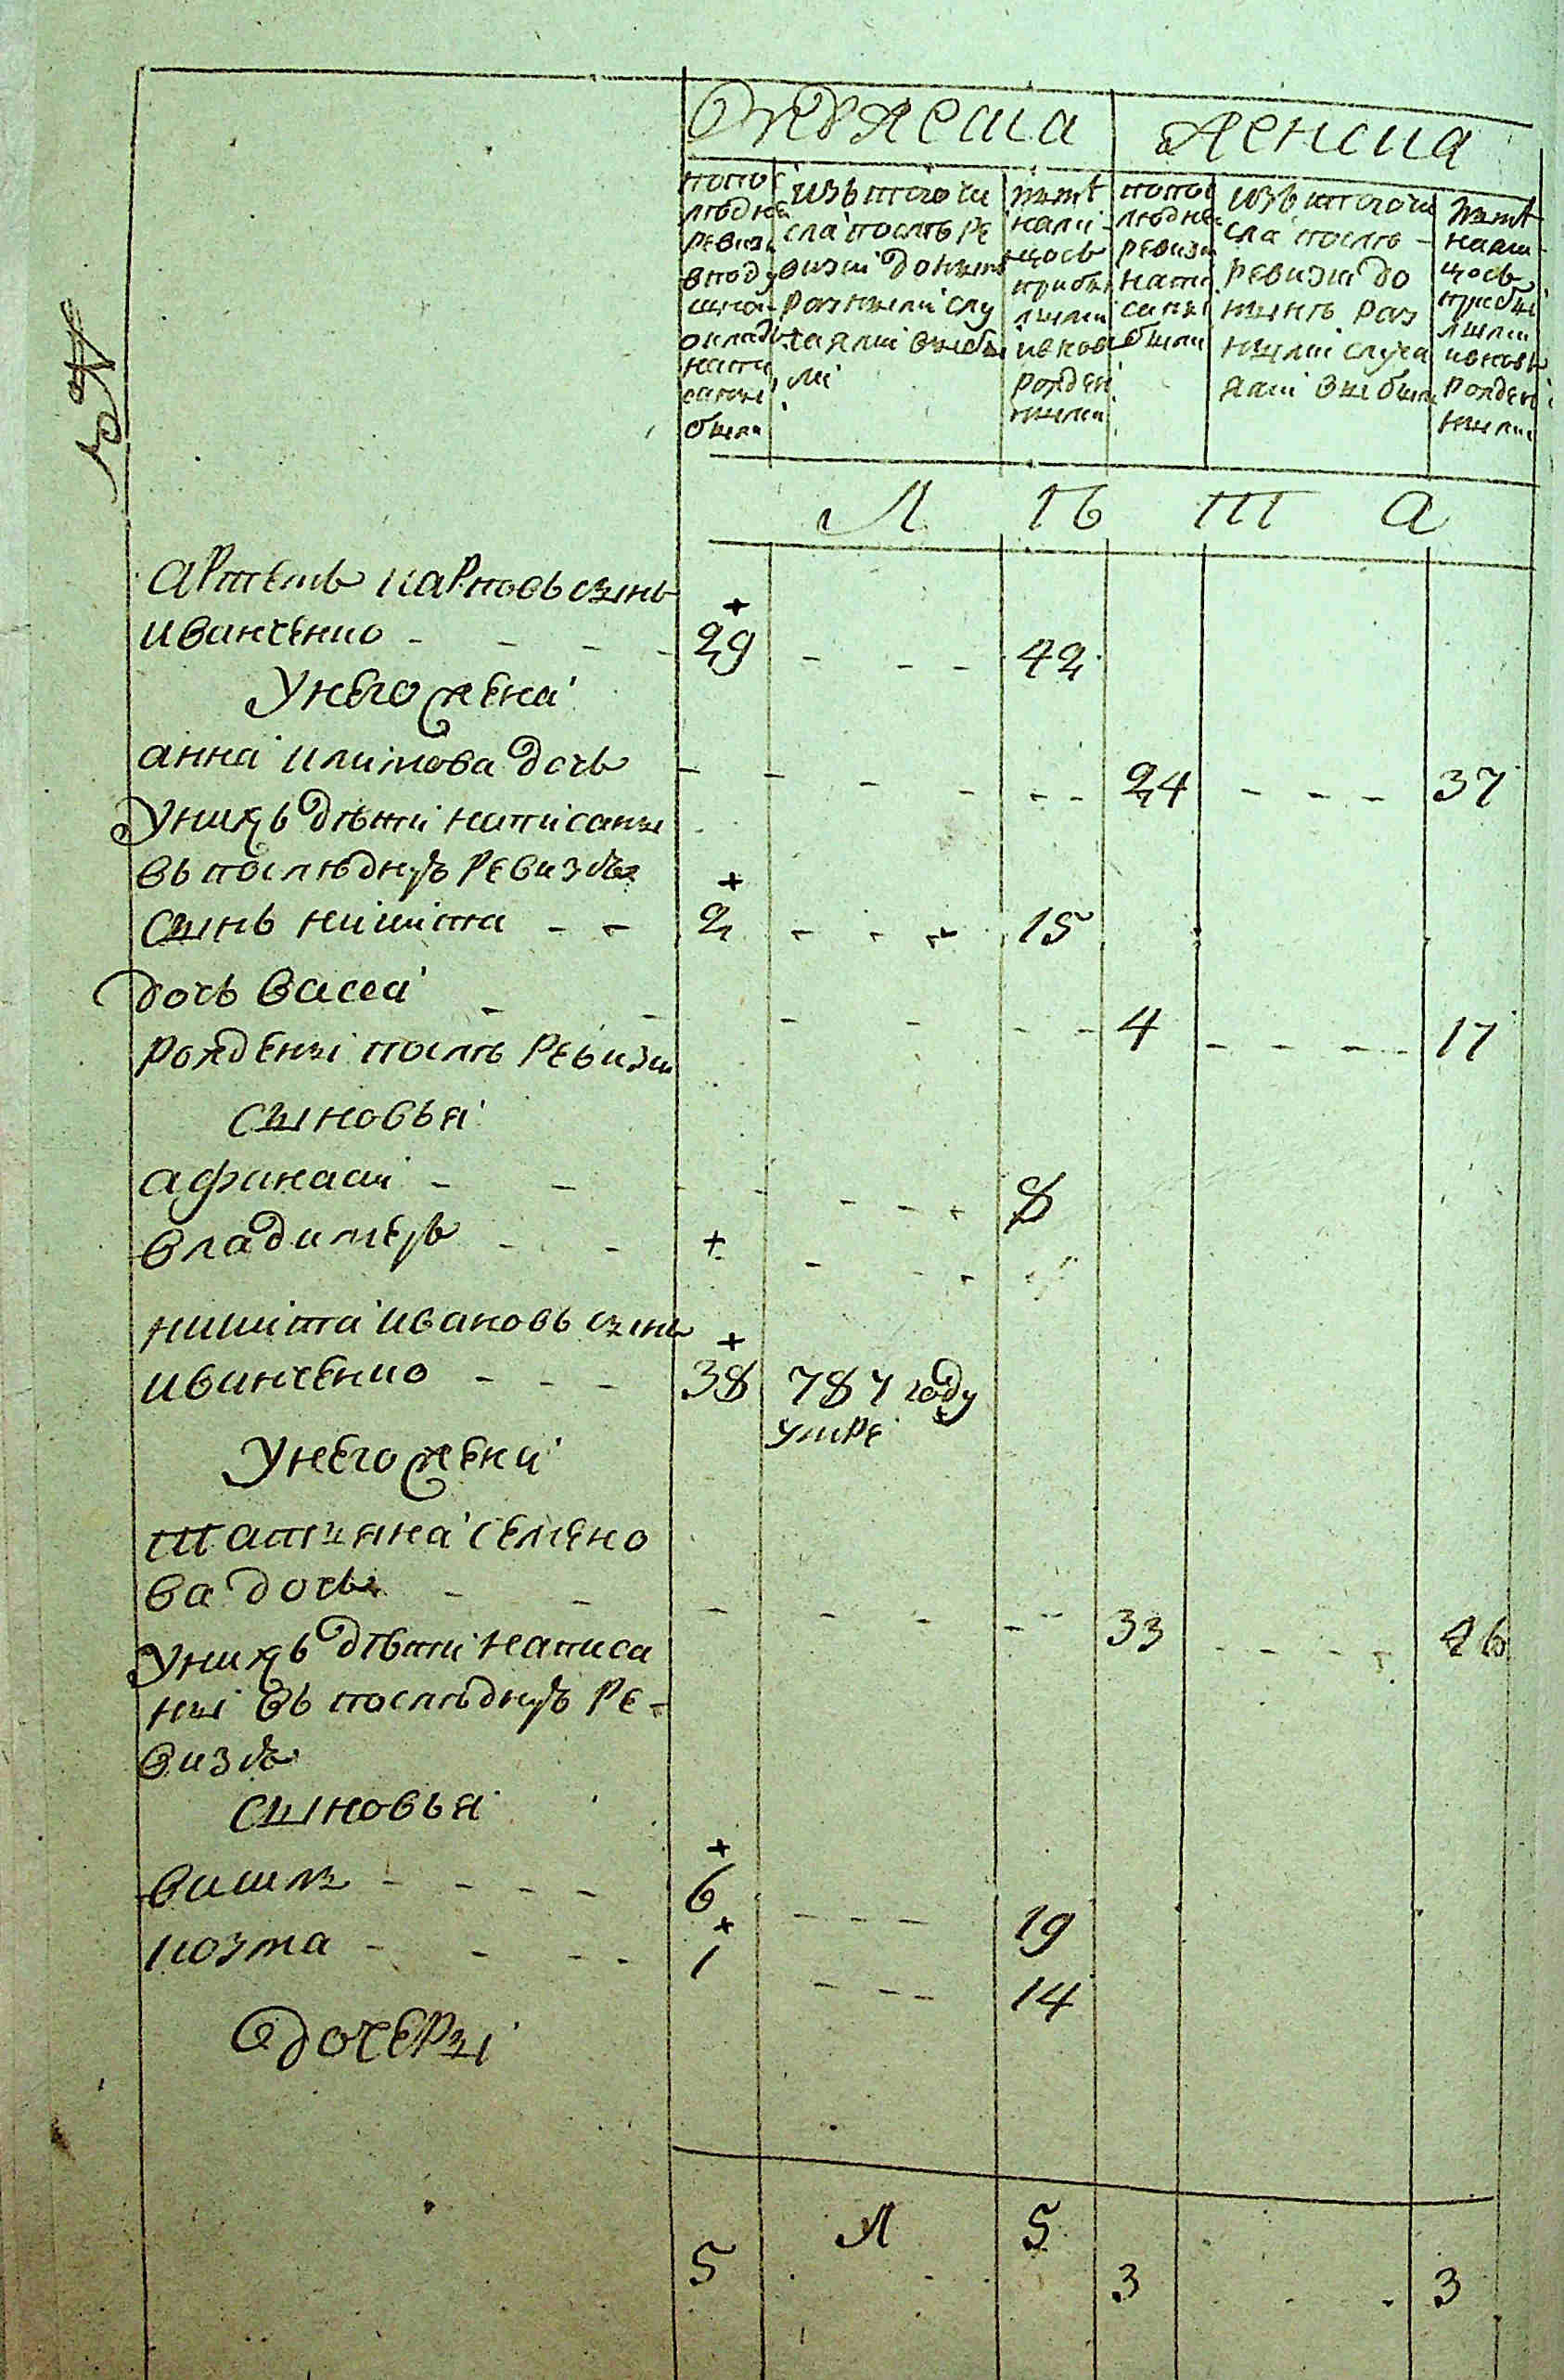 Мужеска Женска
по по
следней
ревизи
в поду
шной
окладъ
напи
саны
были
изъ того чи
сла после ре
визiи до ныне
разными слу
чаями выбы
ли
ныне
нали
цось
прибы
лыми
и вновь
рожден
ными
по по
следней
ревизи
напи
саны
были
изъ того чи
сла после
ревизiи до
ныне раз
ными случа
ями выбыли
ныне
нали
цось
прибы
лыми
и вновь
рожден
ными
Л Ѣ Т А
Артемъ Карповъ сынъ +
Иванченко - - - - 29 - - - 42
У него жена
Анна Климова дочь - - - - - - 24 - - - 37
У нихъ дѣти написаны
въ последнуѣ ревизѣ
сынъ Никита - - +
2 - - - 15
дочь Васса - - - - - - 4 - - - - 17
рождены послѣ ревизи
сыновья
Афанасiй - - - - - - - 8
Владимеръ - - + - - -
Никита Ивановъ сынъ +
Иванченко - - - 38 787 году
умре
У него жена
Татьяна Семено
ва дочь - - - - - - - 33 - - - - 46
У нихъ дѣти написа
ны въ последнуѣ ре-
визѣ
сыновья
Василь - - - - +
6 - - - 19
Козма - - - - +
1 - - - 14
дочеры
5 Л 5 3 3